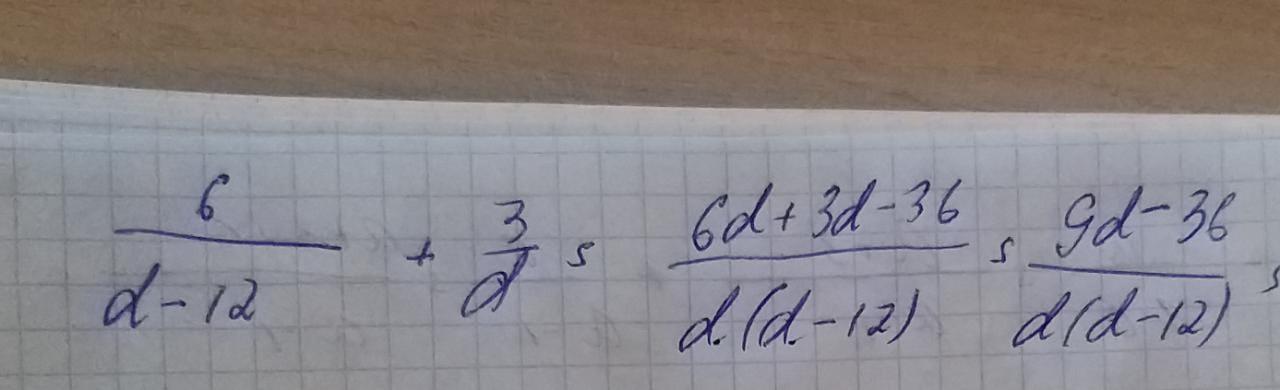 6/(d-12) + 3/d = (6d+3d-36)/(d(d-12)) = (9d-36)/(d(d-12)) =